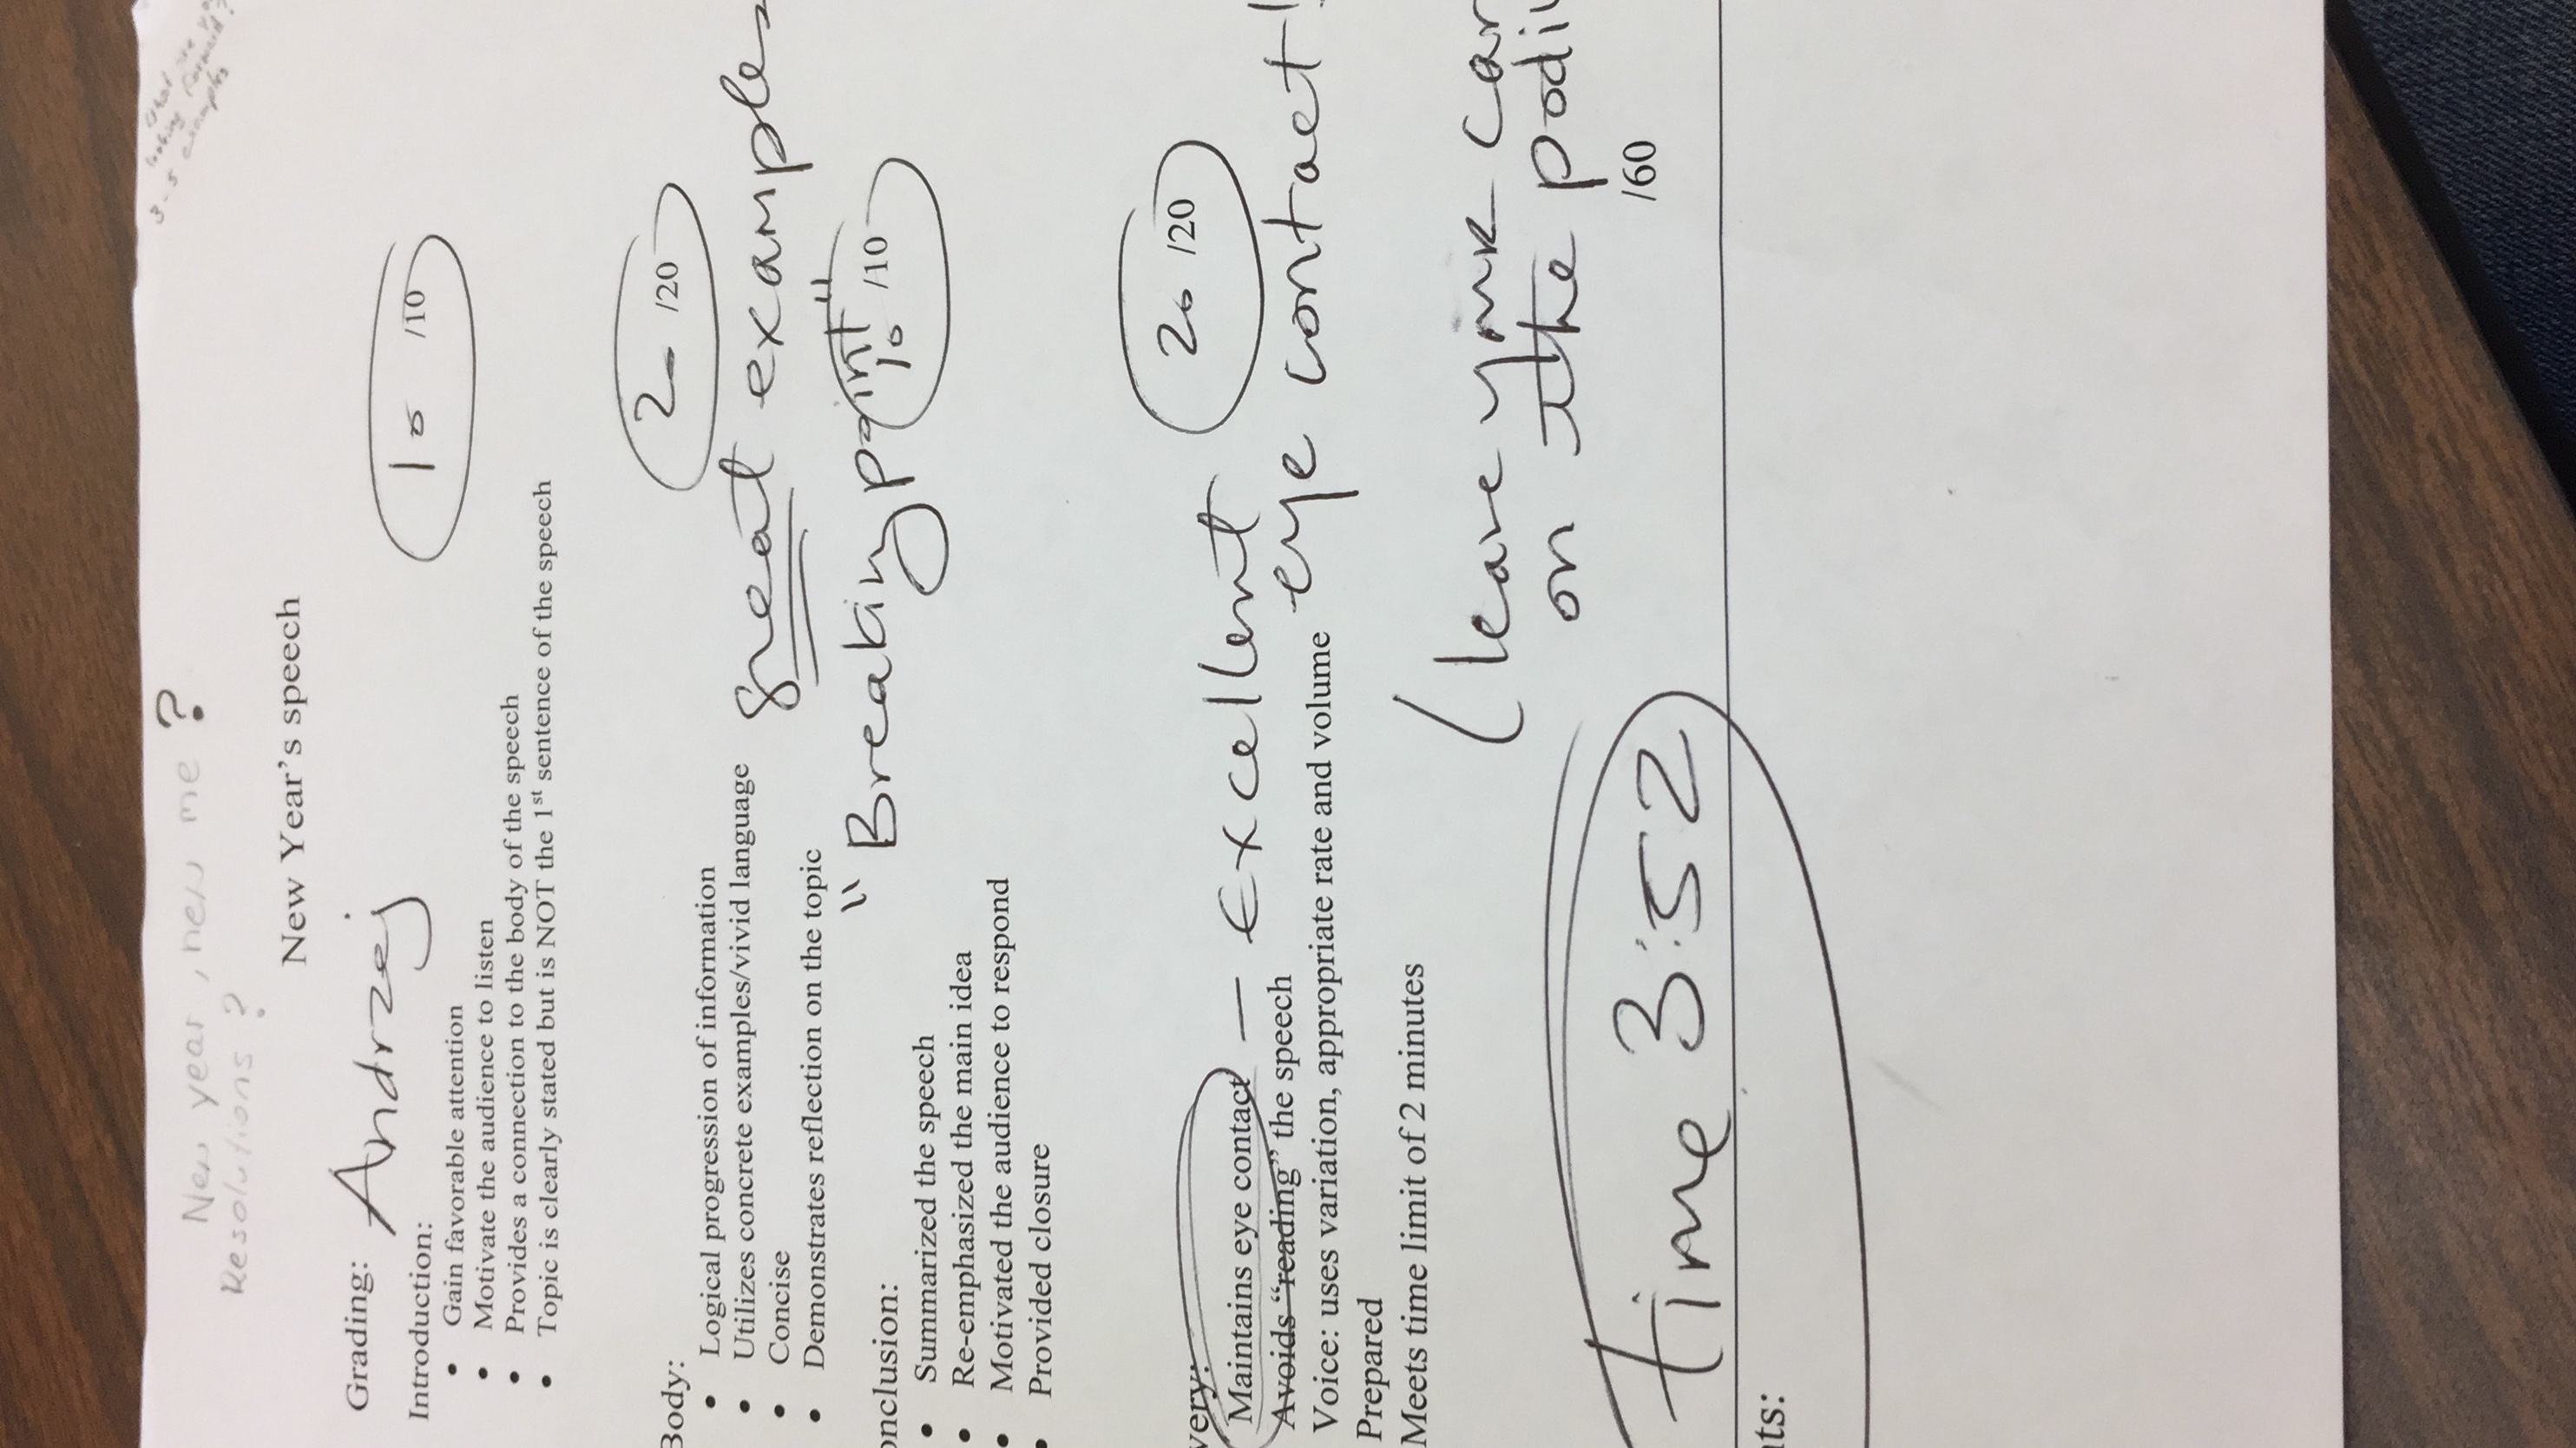 New year, new me ?
Resolutions ?
What are
looking forward?
3-5 examples
New Year's speech
Grading: Andrzej
Introduction: 10 /10
• Gain favorable attention
• Motivate the audience to listen
• Provides a connection to the body of the speech
• Topic is clearly stated but is NOT the 1st sentence of the speech
20 /20
Body:
• Logical progression of information
• Utilizes concrete examples/vivid language great examples
• Concise
• Demonstrates reflection on the topic
"Breaking point" 10 /10
onclusion:
• Summarized the speech
• Re-emphasized the main idea
• Motivated the audience to respond
• Provided closure
very: 20 /20
Maintains eye contact — Excellent
eye contact!
Avoids "reading" the speech
Voice: uses variation, appropriate rate and volume
Prepared
Meets time limit of 2 minutes
(leave your car
on the podiu
/60
time 3:52
ts: